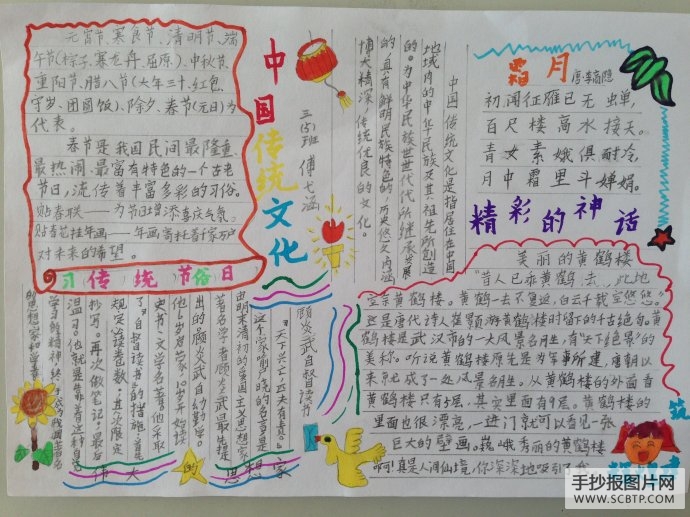 元宵节、寒食节、清明节、端
午节(粽子、赛龙舟、屈原)、中秋节、
重阳节、腊八节(大年三十、红包、
守岁、团圆饭)、除夕、春节(元日)为
代表。
春节是我国民间最隆重、
最热闹、最富有特色的一个古老
节日,流传着丰富多彩的习俗。
贴春联——为节日增添喜庆气氛。
贴春花挂年画——年画寄托着千家万户
对未来的希望。
习传统节俗日
中国传统文化
三(5)班 傅七涵
中国传统文化是指居住在中国
地域内的中华民族及其祖先所创造
的、为中华民族世世代代所继承发展
的、具有鲜明民族特色的、历史悠久、内涵
博大精深、传统优良的文化。
霜月
唐 李商隐
初闻征雁已无蝉,
百尺楼高水接天。
青女素娥俱耐冷,
月中霜里斗婵娟。
精彩的神话
美丽的黄鹤楼
"昔人已乘黄鹤去,此地
空余黄鹤楼。黄鹤一去不复返,白云千载空悠悠。"
这是唐代诗人崔颢游黄鹤楼时留下的千古绝句。黄
鹤楼是武汉市的一大风景名胜,有"天下绝景"的
美称。听说黄鹤楼原先是为军事所建,唐朝以
来就已成了一处风景名胜。从黄鹤楼的外面看
黄鹤楼只有5层,其实里面有9层。黄鹤楼的
里面也很漂亮,一进门就可以看见一张
巨大的壁画。巍峨秀丽的黄鹤楼
啊!真是人间仙境,你深深地吸引了我
筑
顾炎武自督读书
"天下兴亡,匹夫有责。"
这个家喻户晓的名言是
由明末清初的爱国主义思想家、
著名学者顾炎武最先提
出的。顾炎武自幼勤学。
他6岁启蒙,10岁开始读
史书、文学名著。他采取
了"自督读书"的措施:首先
规定每天读卷数,其次限定
抄写。再次做笔记,最后
温习。他就是靠着这种自
学习的精神,终于成为我国著名
的思想家和学者。
伟大的思想家
手抄报图片网
WWW.SCBTP.COM